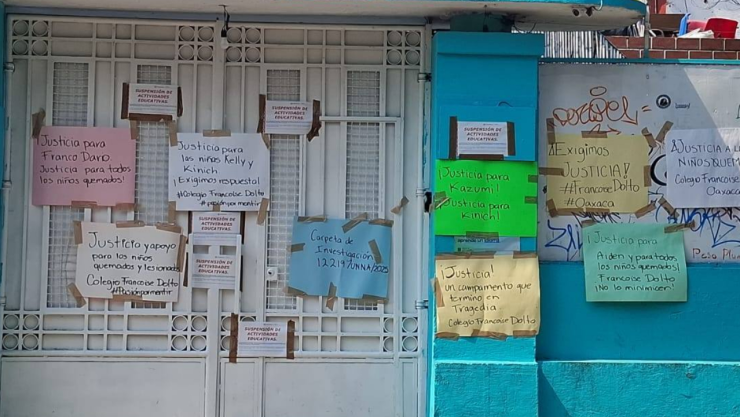 SUSPENSIÓN DE
ACTIVIDADES
EDUCATIVAS.
Justicia para
Franco Dario
Justicia para todos
los niños quemados!
Justicia para
los niños Kelly y
Kinich
¡Exigimos respuesta!
#Colegio Francoise Dolto
SUSPENSIÓN DE
ACTIVIDADES
EDUCATIVAS.
SUSPENSIÓN DE
ACTIVIDADES
EDUCATIVAS.
¡Justicia y apoyo
para los niños
quemados y lesionados
Colegio Francoise Dolto
SUSPENSIÓN DE
ACTIVIDADES
EDUCATIVAS.
Carpeta de
Investigación
SUSPENSIÓN DE
ACTIVIDADES
EDUCATIVAS.
SUSPENSIÓN DE
ACTIVIDADES
EDUCATIVAS.
¡Justicia para
Kazumi!
¡Justicia para
Kinich!
¡Justicia!
un campamento que
termino en
Tragedia
Colegio Francoise Dolto
¡Exigimos
JUSTICIA!
#Francoise Dolto
#Oaxaca
¡JUSTICIA A L
NIÑOS QUEM
Colegio Francoise
Oaxaca
¡Justicia para
Aiden y para todos
los niños quemados!
Francoise Dolto
¡No lo minimicen!